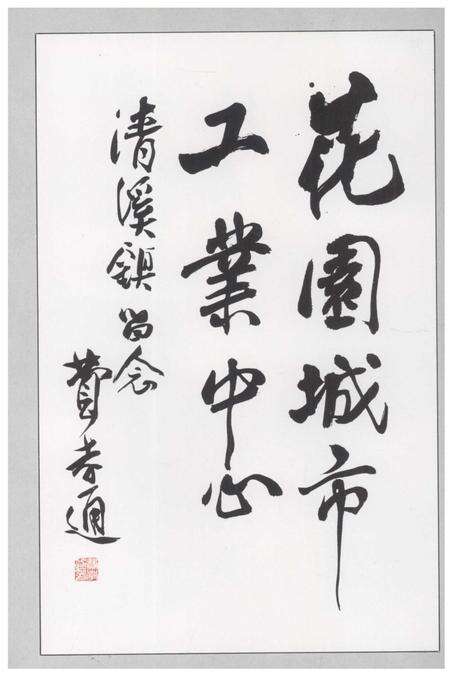 花園城市
工業中心
清溪鎮留念
費孝通